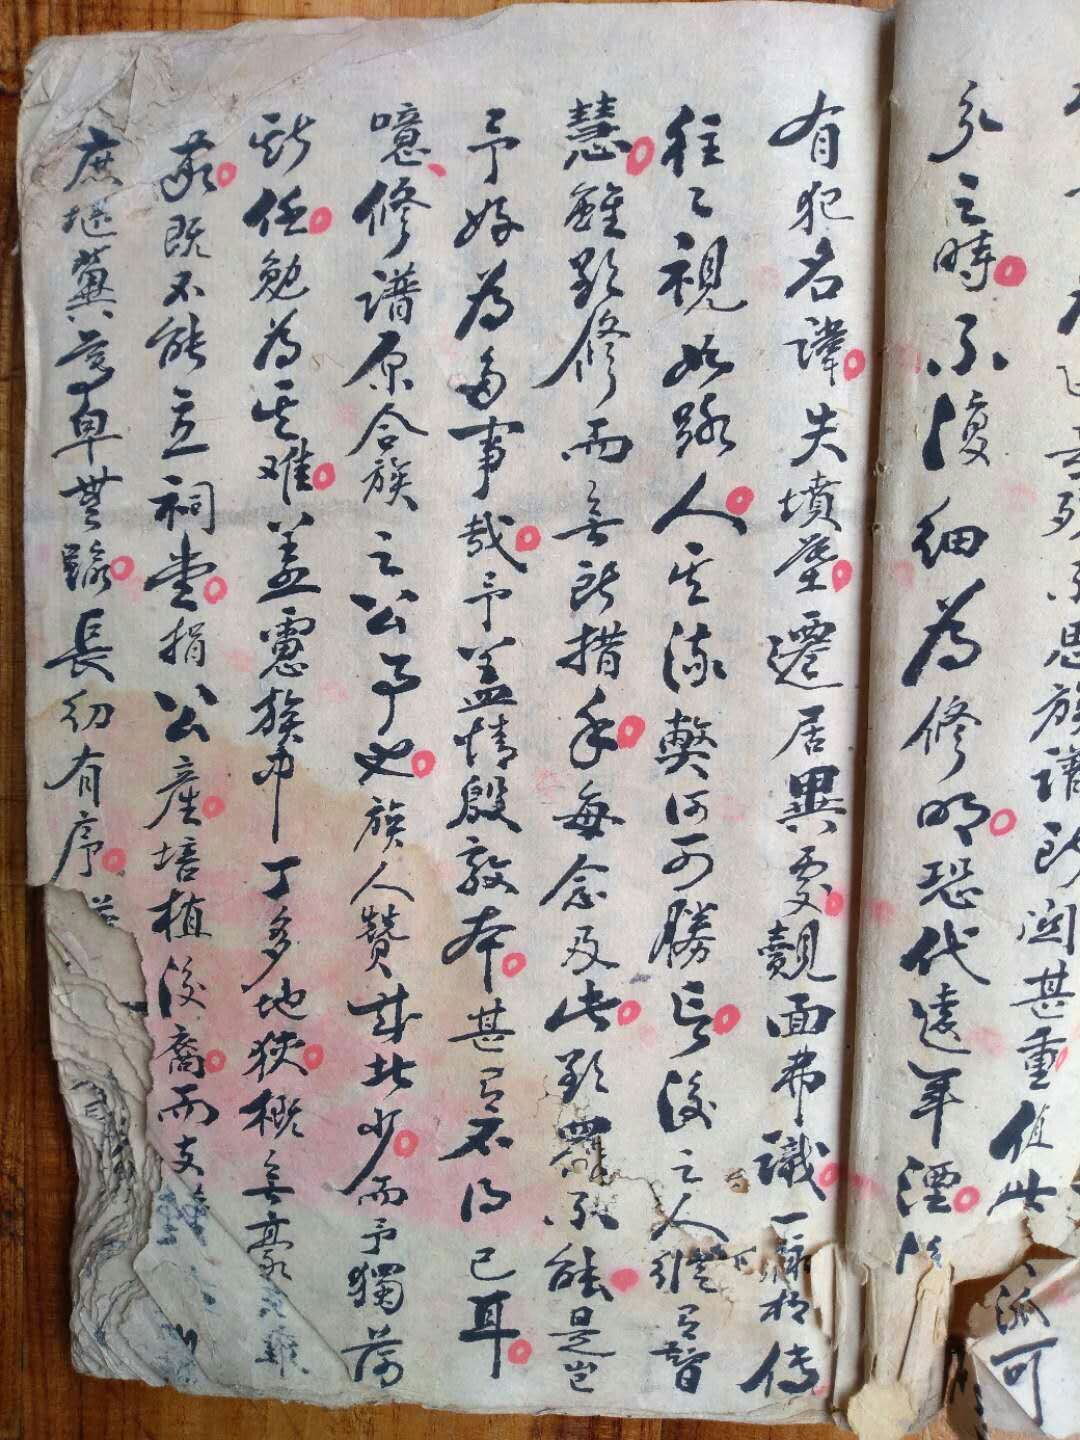 思族譜所関甚重值此
分之時不復細為修明恐代遠年湮
有犯名諱失墳塋遷居異處覿面弗識一脉相傳
往々視如路人其流弊何可勝言後之人縱有智
慧雖欲修而無所措手每念及此欲罷不能是豈
予好為多事哉予盖情殷敦本甚有不得已耳
噫修譜原合族之公事也族人贊成北少而予獨荷
斯任勉為其难盖慮族中丁多地狹概無豪
義既不能立祠堂捐公產培植後裔而支
庶堪冀尊卑無踰長幼有序